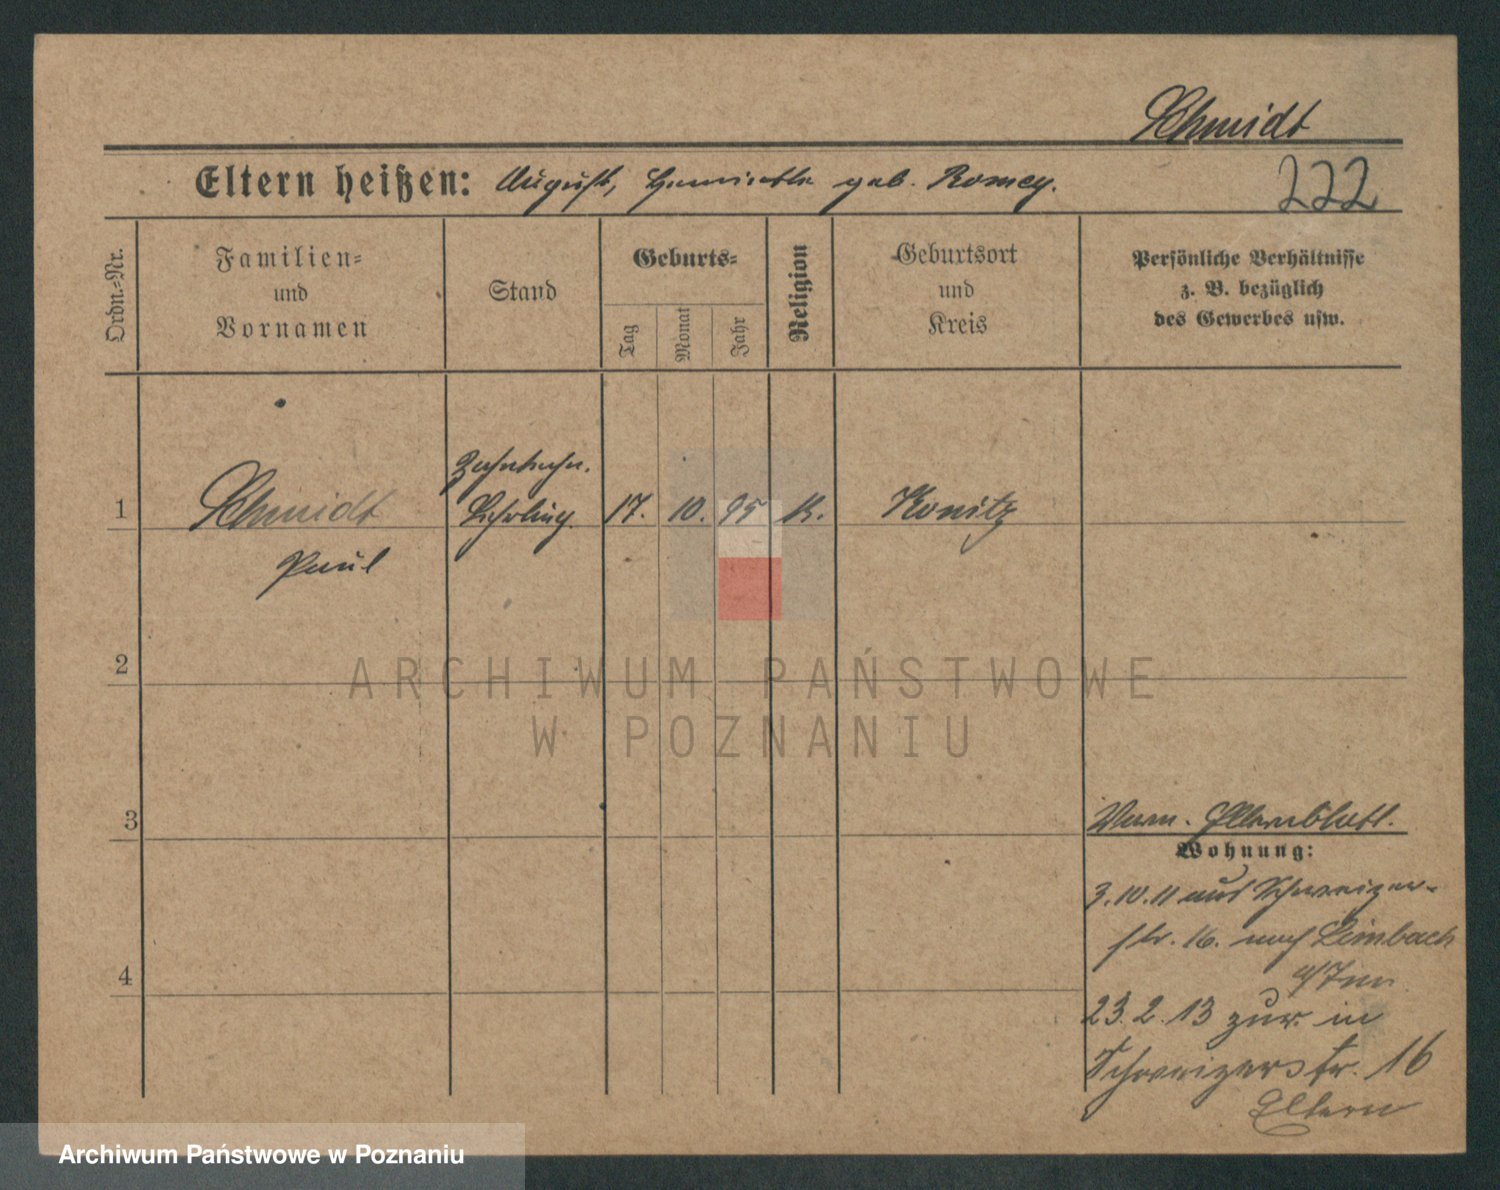 Schmidt
Eltern heißen: August, Henriette geb. Romey.
222
Ordn.-Nr.
Familien-
und
Vornamen
Stand
Geburts-
Tag
Monat
Jahr
Religion
Geburtsort
und
Kreis
Persönliche Verhältnisse
z. B. bezüglich
des Gewerbes usw.
1
Schmidt
Paul
Lehrling
17.
10.
95
K.
Konitz
2
ARCHIWUM PAŃSTWOWE
W POZNANIU
3
4
Elternblatt.
Wohnung:
3.10.11 aus Schweizer-
str. 16. nach Leimbach
23.2.13 zur. in
Schweizerstr. 16
Eltern
Archiwum Państwowe w Poznaniu